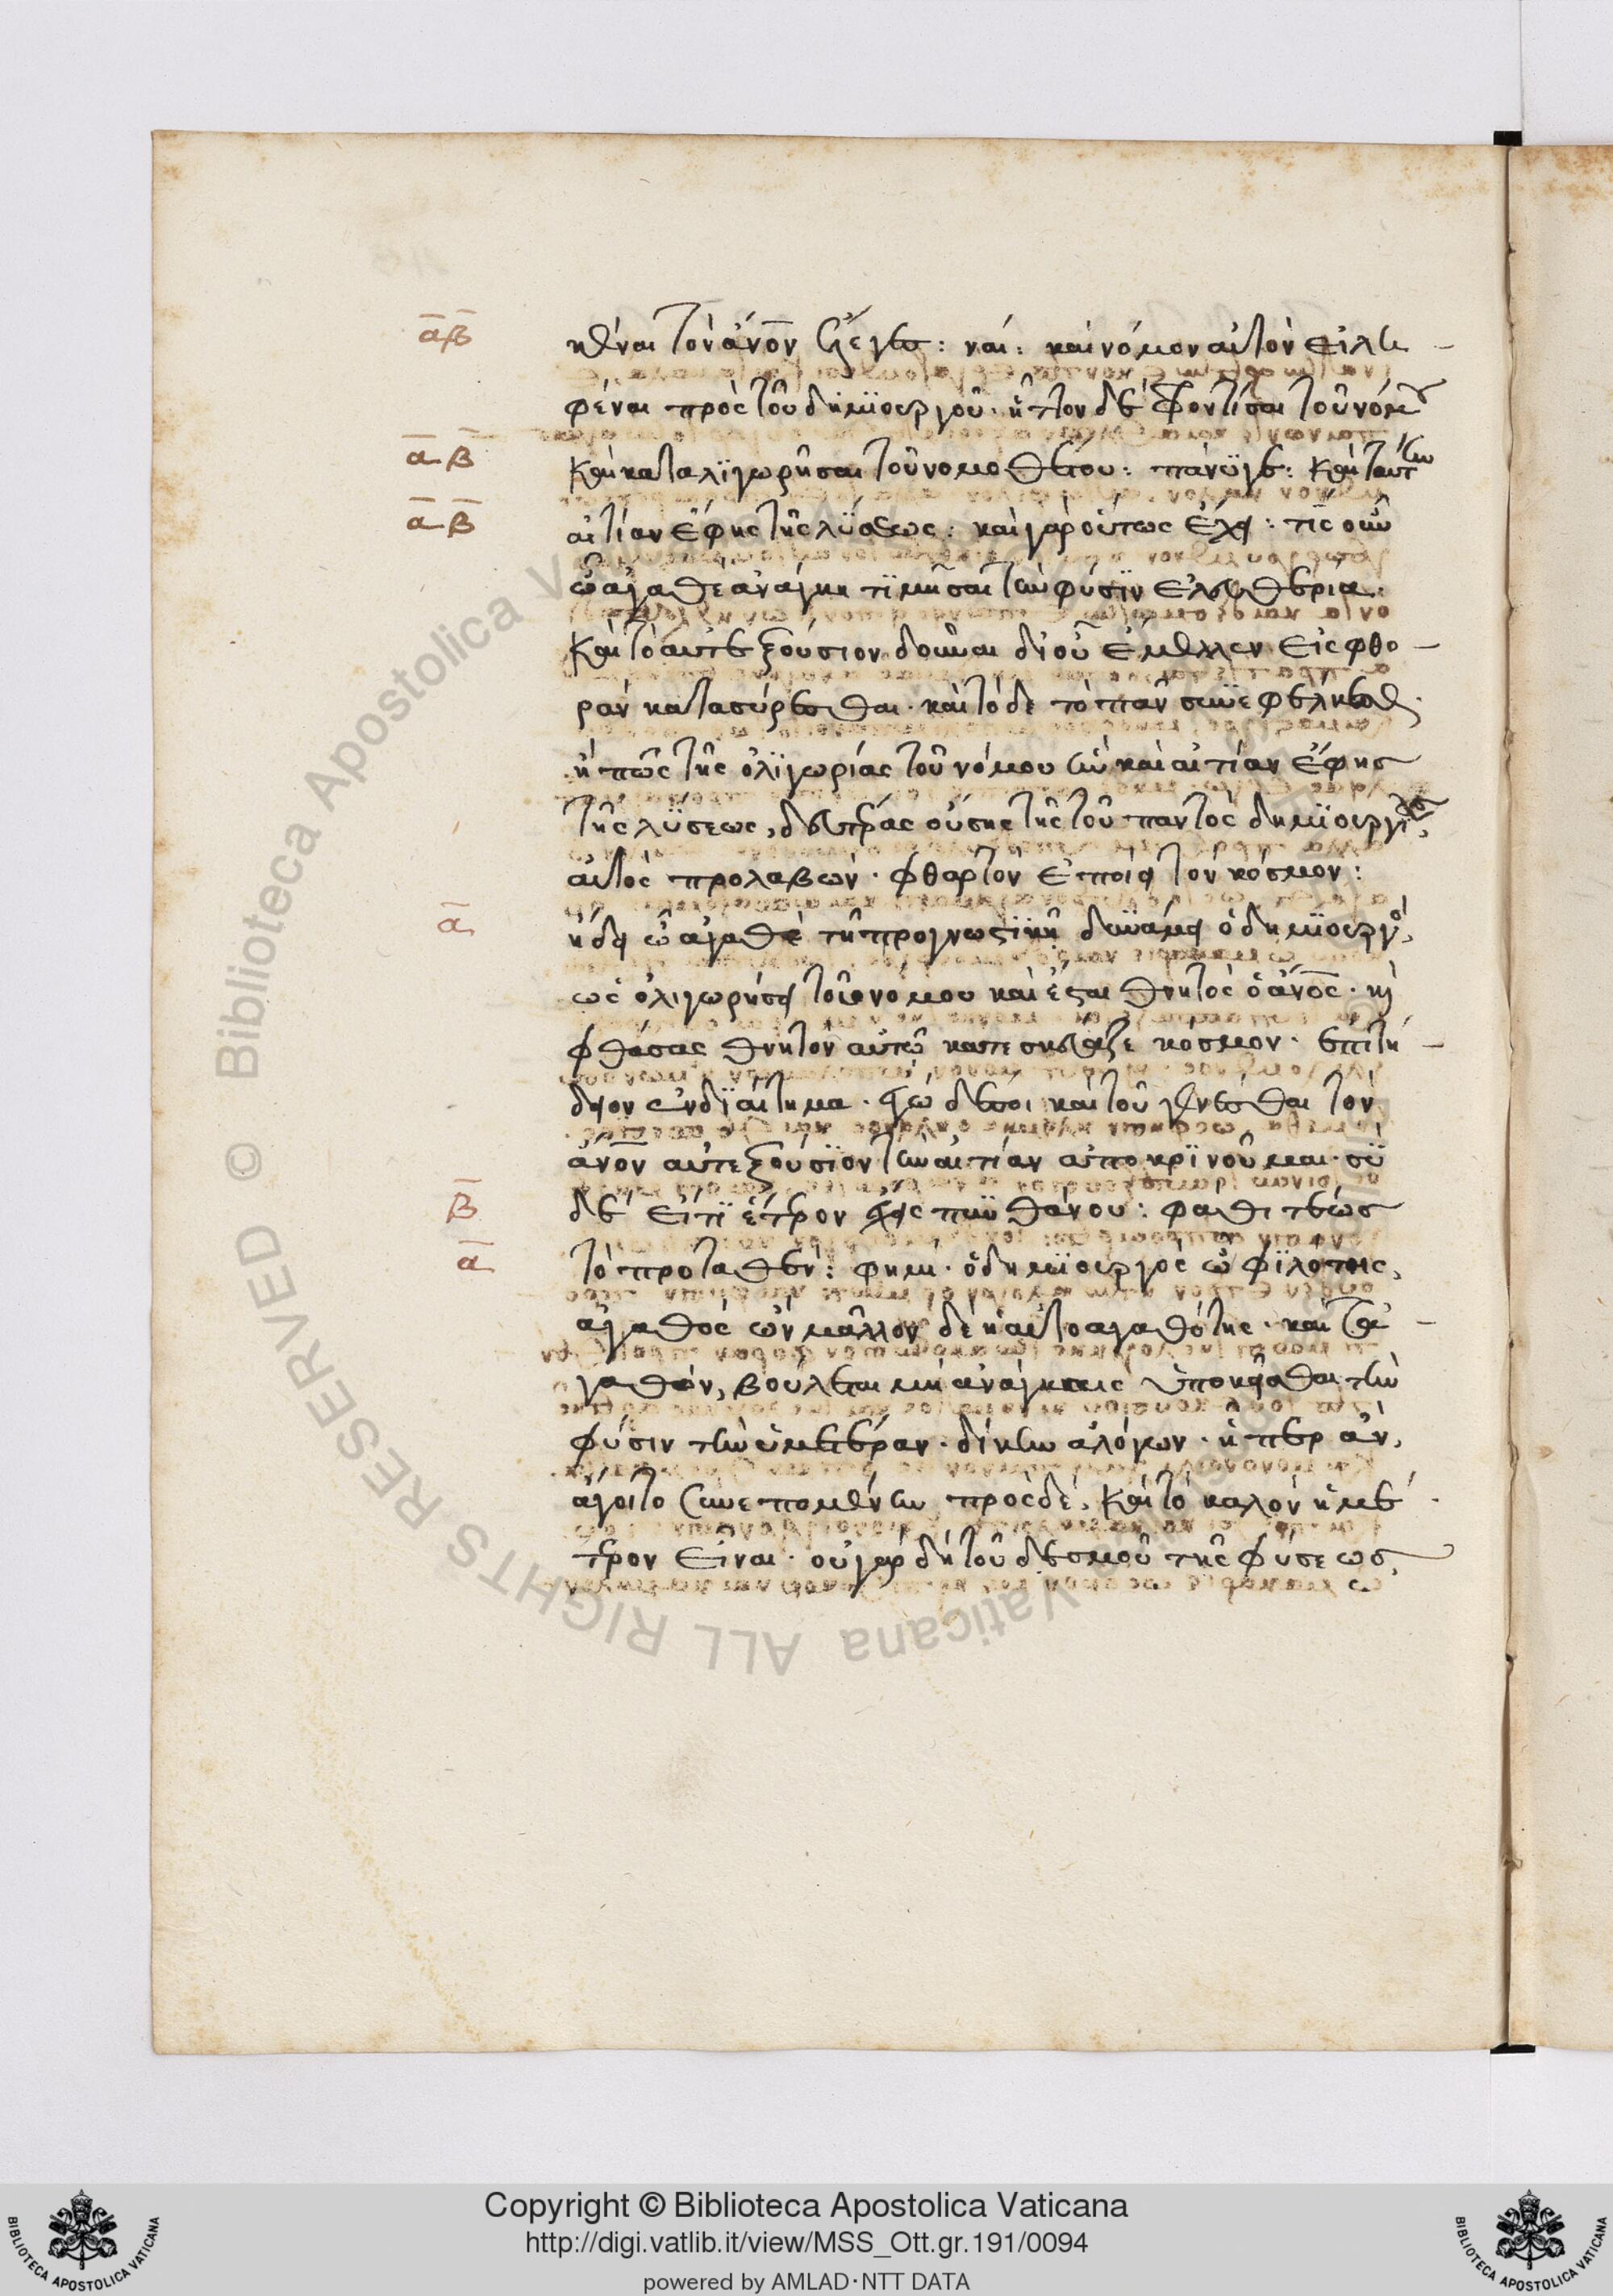 ᾱβ̄
κέναι τὸν ἄνον ἔλεγες: ναί: καὶ νόμον αὐτὸν εἰλη-
φέναι πρὸς τοῦ δημϊουργοῦ. ἧττον δὲ φροντίσαι τοῦ νόμου
ᾱ β̄
καὶ καταλϊγωρῆσαι τοῦ νομοθέτου: πάνϋγε: καὶ ταύτην
ᾱ β̄
αἰτίαν ἔφης τῆς λύσεως: καὶ γὰρ οὕτως ἔχει: τίς οὖν
ὦ ἀγαθὲ ἀνάγκη τϊμῆσαι τὴν φύσϊν ἐλευθερία.
καὶ τὸ αὐτεξούσιον δοῦναι δι' οὗ ἔμελλεν εἰς φθο-
ρὰν κατασύρεσθαι. καὶ τόδε τὸ πᾶν συνεφέλκεσθαι.
ἢ πῶς τῆς ὀλϊγωρίας τοῦ νόμου ἣν καὶ αἰτίαν ἔφης
τῆς λύσεως, δευτέρας οὔσης τῆς τοῦ παντὸς δημϊουργίας,
αὐτὸς προλαβὼν. φθαρτὸν ἐποίει τὸν κόσμον:
ᾱ
ἤδει ὦ ἀγαθὲ τῇ προγνωστϊκῇ δυνάμει ὁ δημϊουργός,
ὡς ὀλιγωρήσει τοῦ νόμου καὶ ἔσται θνητὸς ὁ ἄνος. καὶ
φθάσας θνητὸν αὐτῷ κατεσκεύαζε κόσμον. ἐπιτή-
δειον ἐνδϊαίτημα. ἐγὼ δέ σοι καὶ τοῦ γενέσθαι τὸν
ἄνον αὐτεξούσϊον τὴν αἰτίαν ἀποκρϊνοῦμαι. σὺ
β̄
δὲ εἴ τϊ ἕτερον ἔχεις πυνθάνου: φάθι τέως
ᾱ
τὸ προταθέν: φημί. ὁ δημϊουργὸς ὦ φϊλότης,
ἀγαθὸς ὢν μᾶλλον δὲ ἡ αὐτοαγαθότης. καὶ τὰ
γαθὸν, βούλεται μὴ ἀνάγκαις ὑποκεῖσθαι τὴν
φύσιν τὴν ἡμετέραν. δίκην ἀλόγων. ᾗπερ ἂν,
ἄγοιτο συνεπομένην πρὸς δέ, καὶ τὸ καλὸν ἡμέ
τερον εἶναι. οὐ γὰρ δὴ τοῦ δεσμοῦ τῆς φύσεως
Copyright © Biblioteca Apostolica Vaticana
http://digi.vatlib.it/view/MSS_Ott.gr.191/0094
powered by AMLAD·NTT DATA
BIBLIOTECA APOSTOLICA VATICANA
BIBLIOTECA APOSTOLICA VATICANA
© Biblioteca Apostolica Vaticana ALL RIGHTS RESERVED